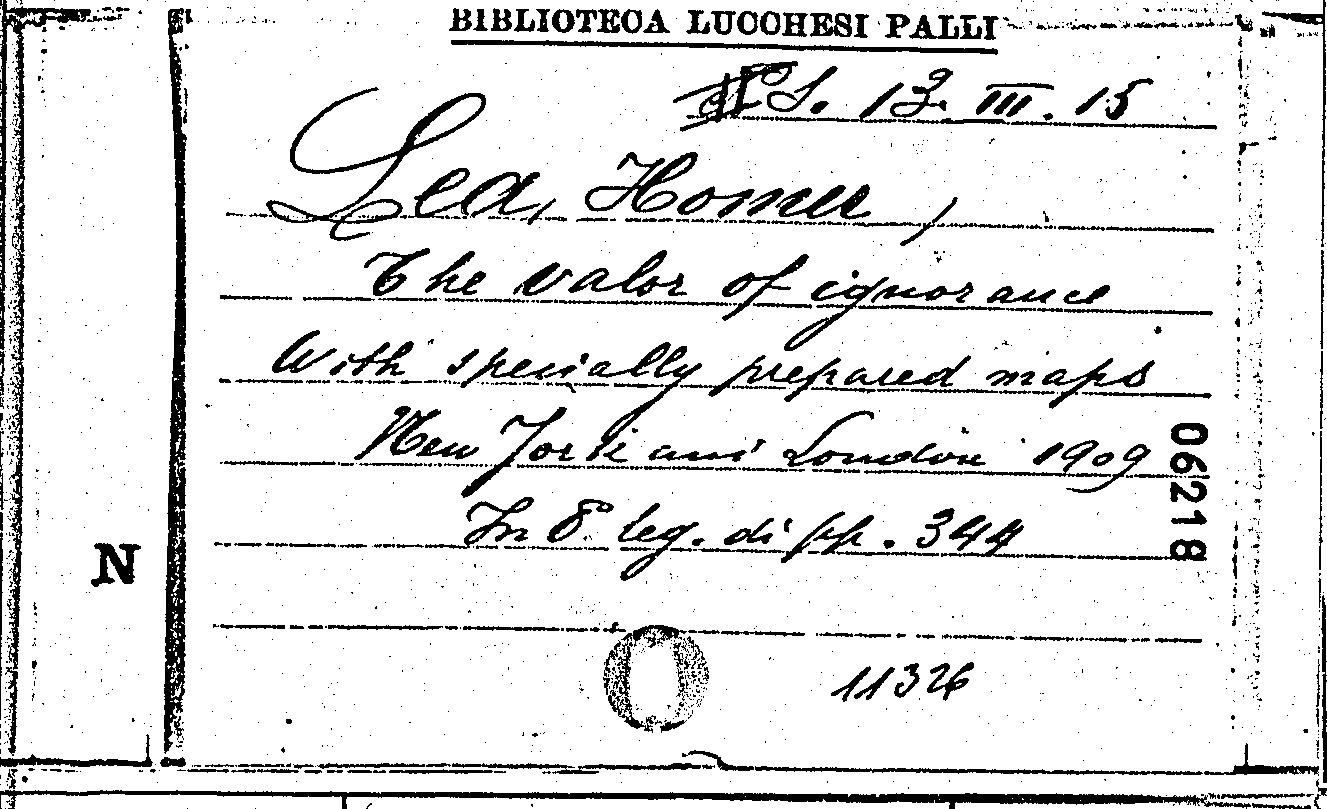 BIBLIOTECA LUCCHESI PALLI
S. 13. III. 15
Lea, Homer,
The valor of ignorance
With specially prepared maps
New York and London 1909
In 8° leg. di pp. 344
06218
N
11326